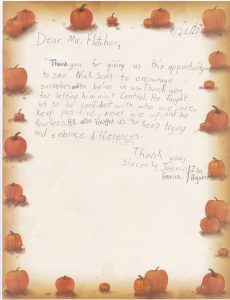 9/21/17
Dear Mr. Fletcher,
Thank you for giving us this opportunity
to see Nick Scott to encourage
ourselves to belive in us. Thank you
for letting him visit Central. He taught
us to be confident with who we are,
keep positive, never give up, and be
fearless. He also taught us to keep trying
and embrace differences.
Thank you,
sincerly Jasmin
Garcia